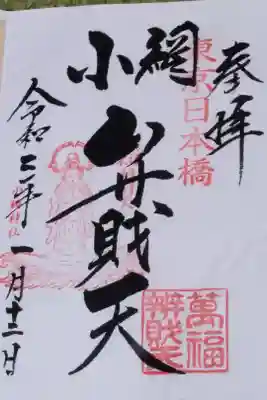 奉拝
東京日本橋
小網
弁財天
令和二年一月十三日
萬福
辨財天